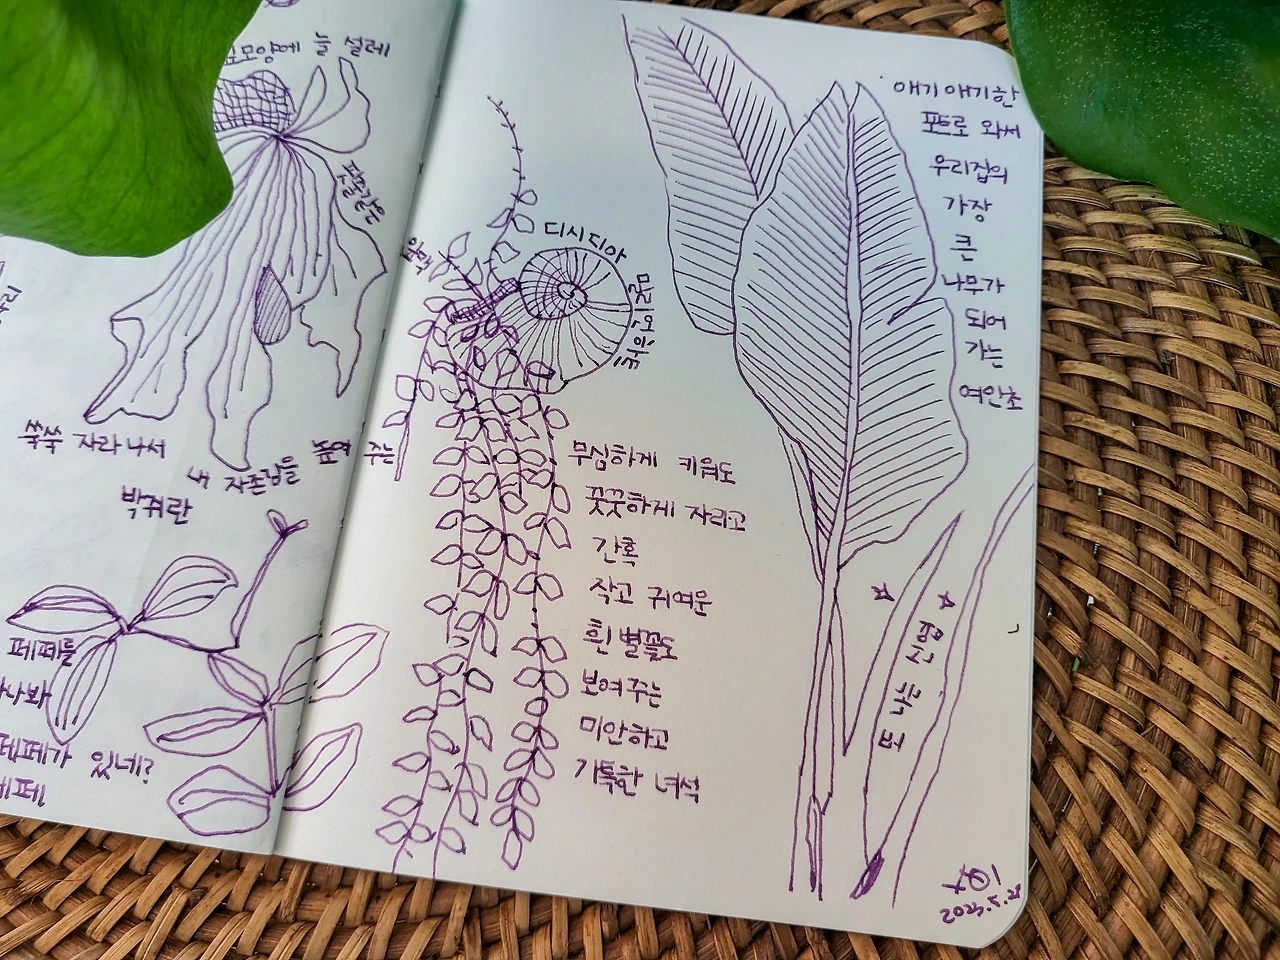 늘 설레
쑥쑥 자라나서
내 자존감을 높여 주는
박쥐란
페페를
페페가 있네?
페페
디시디아
애기애기한
포트로 와서
우리집의
가장
큰
나무가
되어
가는
여인초
무심하게 키워도
꿋꿋하게 자라고
간혹
작고 귀여운
흰 별꽃도
보여주는
미안하고
기특한 녀석